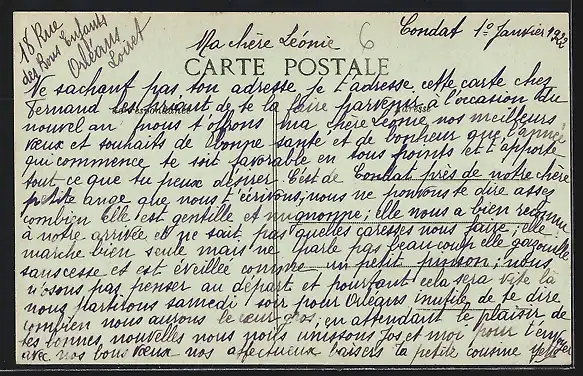 18 Rue
des Bons Enfants
Orléans
Loiret
Condat 1º Janvier 1922
Ma chère Léonie
6
CARTE POSTALE
Ne sachant pas ton adresse je t'adresse cette carte chez
Fernand les priant de te la faire parvenir à l'occasion du
nouvel an nous t'offrons ma chère Léonie nos meilleurs
vœux et souhaits de bonne santé et de bonheur que l'année
qui commence te soit favorable en tous points et t'apporte
tout ce que tu peux désirer. C'est de Condat près de notre chère
petite ange que nous t'écrivons, nous ne pouvons te dire assez
combien Elle est gentille et mignonne; elle nous a bien reconnu
à notre arrivée et ne sait pas quelles caresses nous faire; elle
marche bien seule mais ne parle pas beaucoup elle gazouille
sanscesse et est éveillée comme un petit pinson; nous
n'osons pas penser au départ et pourtant cela sera vite là
nous partirons samedi soir pour Orléans inutile de te dire
combien nous aurons le cœur gros; en attendant le plaisir de
tes bonnes nouvelles nous nous unissons Jos et moi pour t'envoyer
avec nos bons vœux nos affectueux baisers ta petite cousine